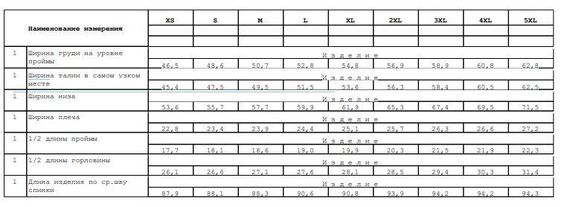 Наименование измерения XS S M L XL 2XL 3XL 4XL 5XL
1 Ширина груди на уровне проймы Изделие
46,5 48,6 50,7 52,8 54,8 56,9 58,9 60,8 62,8
1 Ширина талии в самом узком месте Изделие
45,4 47,5 49,5 51,5 53,6 56,3 58,4 60,5 62,5
1 Ширина низа Изделие
53,6 55,7 57,7 59,9 61,9 65,3 67,4 69,5 71,5
1 Ширина плеча Изделие
22,8 23,4 23,9 24,4 25,1 25,7 26,3 26,6 27,2
1 1/2 длины проймы Изделие
17,7 18,1 18,6 19,0 19,9 20,3 21,5 21,9 22,3
1 1/2 длины горловины Изделие
26,1 26,6 27,1 27,6 28,1 28,5 29,4 30,3 31,4
1 Длина изделия по ср.шву спинки Изделие
87,9 88,1 88,3 90,6 90,8 93,9 94,2 94,2 94,3